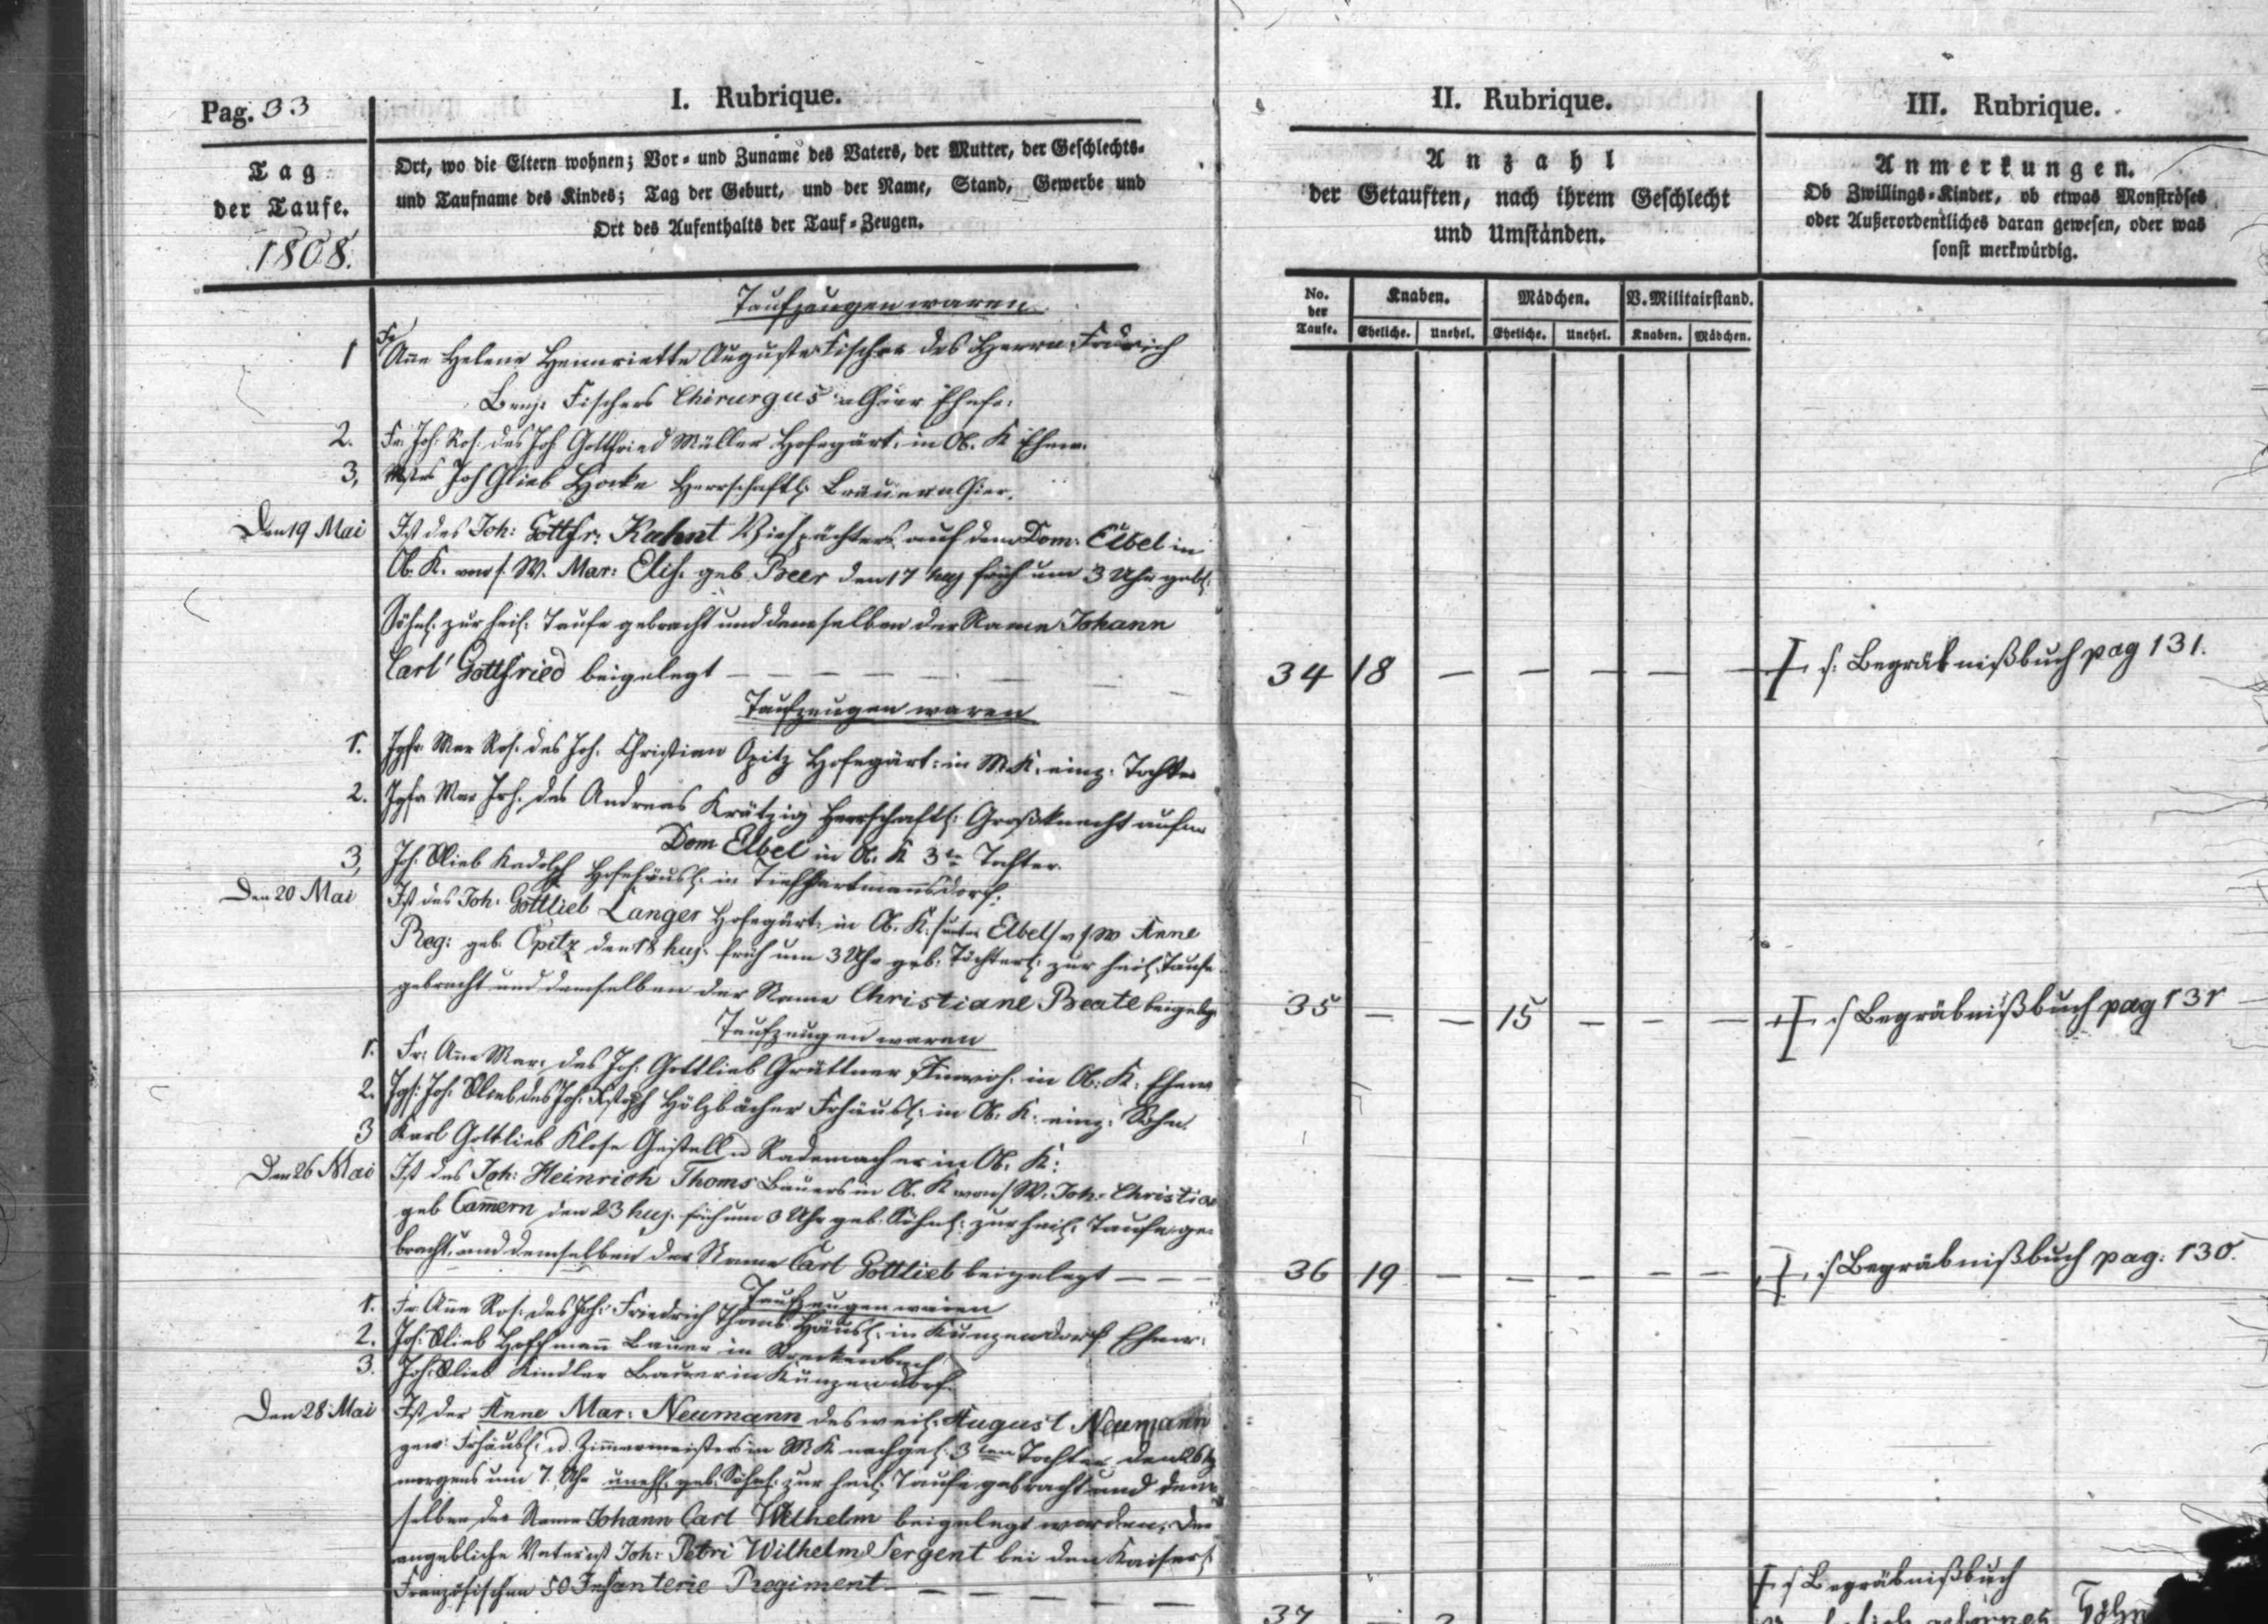 Pag. 33
I. Rubrique.
II. Rubrique.
III. Rubrique.
Tag
der Taufe.
1808.
Ort, wo die Eltern wohnen; Vor- und Zuname des Vaters, der Mutter, der Geschlechts-
und Taufname des Kindes; Tag der Geburt, und der Name, Stand, Gewerbe und
Ort des Aufenthalts der Tauf-Zeugen.
Anzahl
der Getauften, nach ihrem Geschlecht
und Umständen.
Anmerkungen.
Ob Zwillings-Kinder, ob etwas Monströses
oder Außerordentliches daran gewesen, oder was
sonst merkwürdig.
No. der Taufe. Knaben. Mädchen. V. Militairstand.
Eheliche. Unehel. Eheliche. Unehel. Knaben. Mädchen.
Taufzeugen waren
1 Fr Ane Helene Hennriette Auguste Fischer des Herrn
Benj: Fischers Chirurgus allhier Ehefr:
2. Fr. Joh: Ros: des Joh Gottfried Müller Hofegärt: in Ob. K Ehew.
3, Mstr Joh Glieb Hocke Herrschaftl: Brauer allhier.
Den 19 Mai Ist des Joh: Gottfr: Kahnt Viehpächters auf dem Dom: Eibel in
Ob. K. von s. W. Mar: Elis. geb. Beer den 17 huj früh um 3 Uhr geb.
Söhnl. zur heil: Taufe gebracht und demselben der Name Johann
Carl Gottfried beigelegt — — — —
34 18 — — — — — s. Begräbnißbuch pag 131.
Taufzeugen waren
1. Jgfr. Mar Ros: des Joh. Christian Opitz Hofegärt: in M. K. einz. Tochter
2. Jgfr Mar Joh. des Andreas Krätzig Herrschaftl: Großknecht aufm
Dom Elbel in Ob. K 3te Tochter.
3, Joh. Glieb Kadolph Hofehäusl: in Tiefhartmannsdorf.
Den 20 Mai Ist des Joh: Gottlieb Langer Hofegärt: in Ob. K. /unter Elbel/ v s W Anne
Reg: geb. Opitz den 18 huj. früh um 3 Uhr geb: Töchterl: zur heil. Taufe
gebracht und demselben der Name Christiane Beate beigelegt
35 — — 15 — — — s Begräbnißbuch pag 131
Taufzeugen waren
1. Fr: Ane Mar: des Joh: Gottlieb Grüttner Inwoh: in Ob: K. Ehew
2. Jgs: Joh. Glieb des Joh. Hölzbächer Frhäusl: in Ob. K. einz: Sohn.
3 Karl Gottlieb Klose Gestell u Rademacher in Ob. K:
Den 26 Mai Ist des Joh: Heinrich Thoms Bauers in Ob. K von s W. Joh: Christia
geb Camern den 23 huj. früh um 3 Uhr geb. Söhnl: zur heil. Taufe ge-
bracht, und demselben der Name Carl Gottlieb beigelegt — — —
36 19 — — — — — s Begräbnißbuch pag. 130.
Taufzeugen waren
1. Fr Ane Ros: des Joh: Friedrich Thoms Häusl: in Kunzendorf Ehew:
2. Joh: Glieb Hoffmann Bauer in Streckenbach
3. Joh: Glieb Kindler Bauer in Kunzendorf
Den 28 Mai Ist der Anne Mar: Neumann des weil: August Neumann
gew: Frhäusl: u. Zimmermeisters in M K nachgel: 3ten Tochter den 26
morgens um 7 Uhr unehl. geb. Söhnl: zur heil: Taufe gebracht und dem-
selben der Name Johann Carl Wilhelm beigelegt worden. Der
angebliche Vater ist Joh: Petri Wilhelm Sergent bei den Kaiserl:
Französischen 50 Infanterie Regiment — — — —
s Begräbnißbuch
37